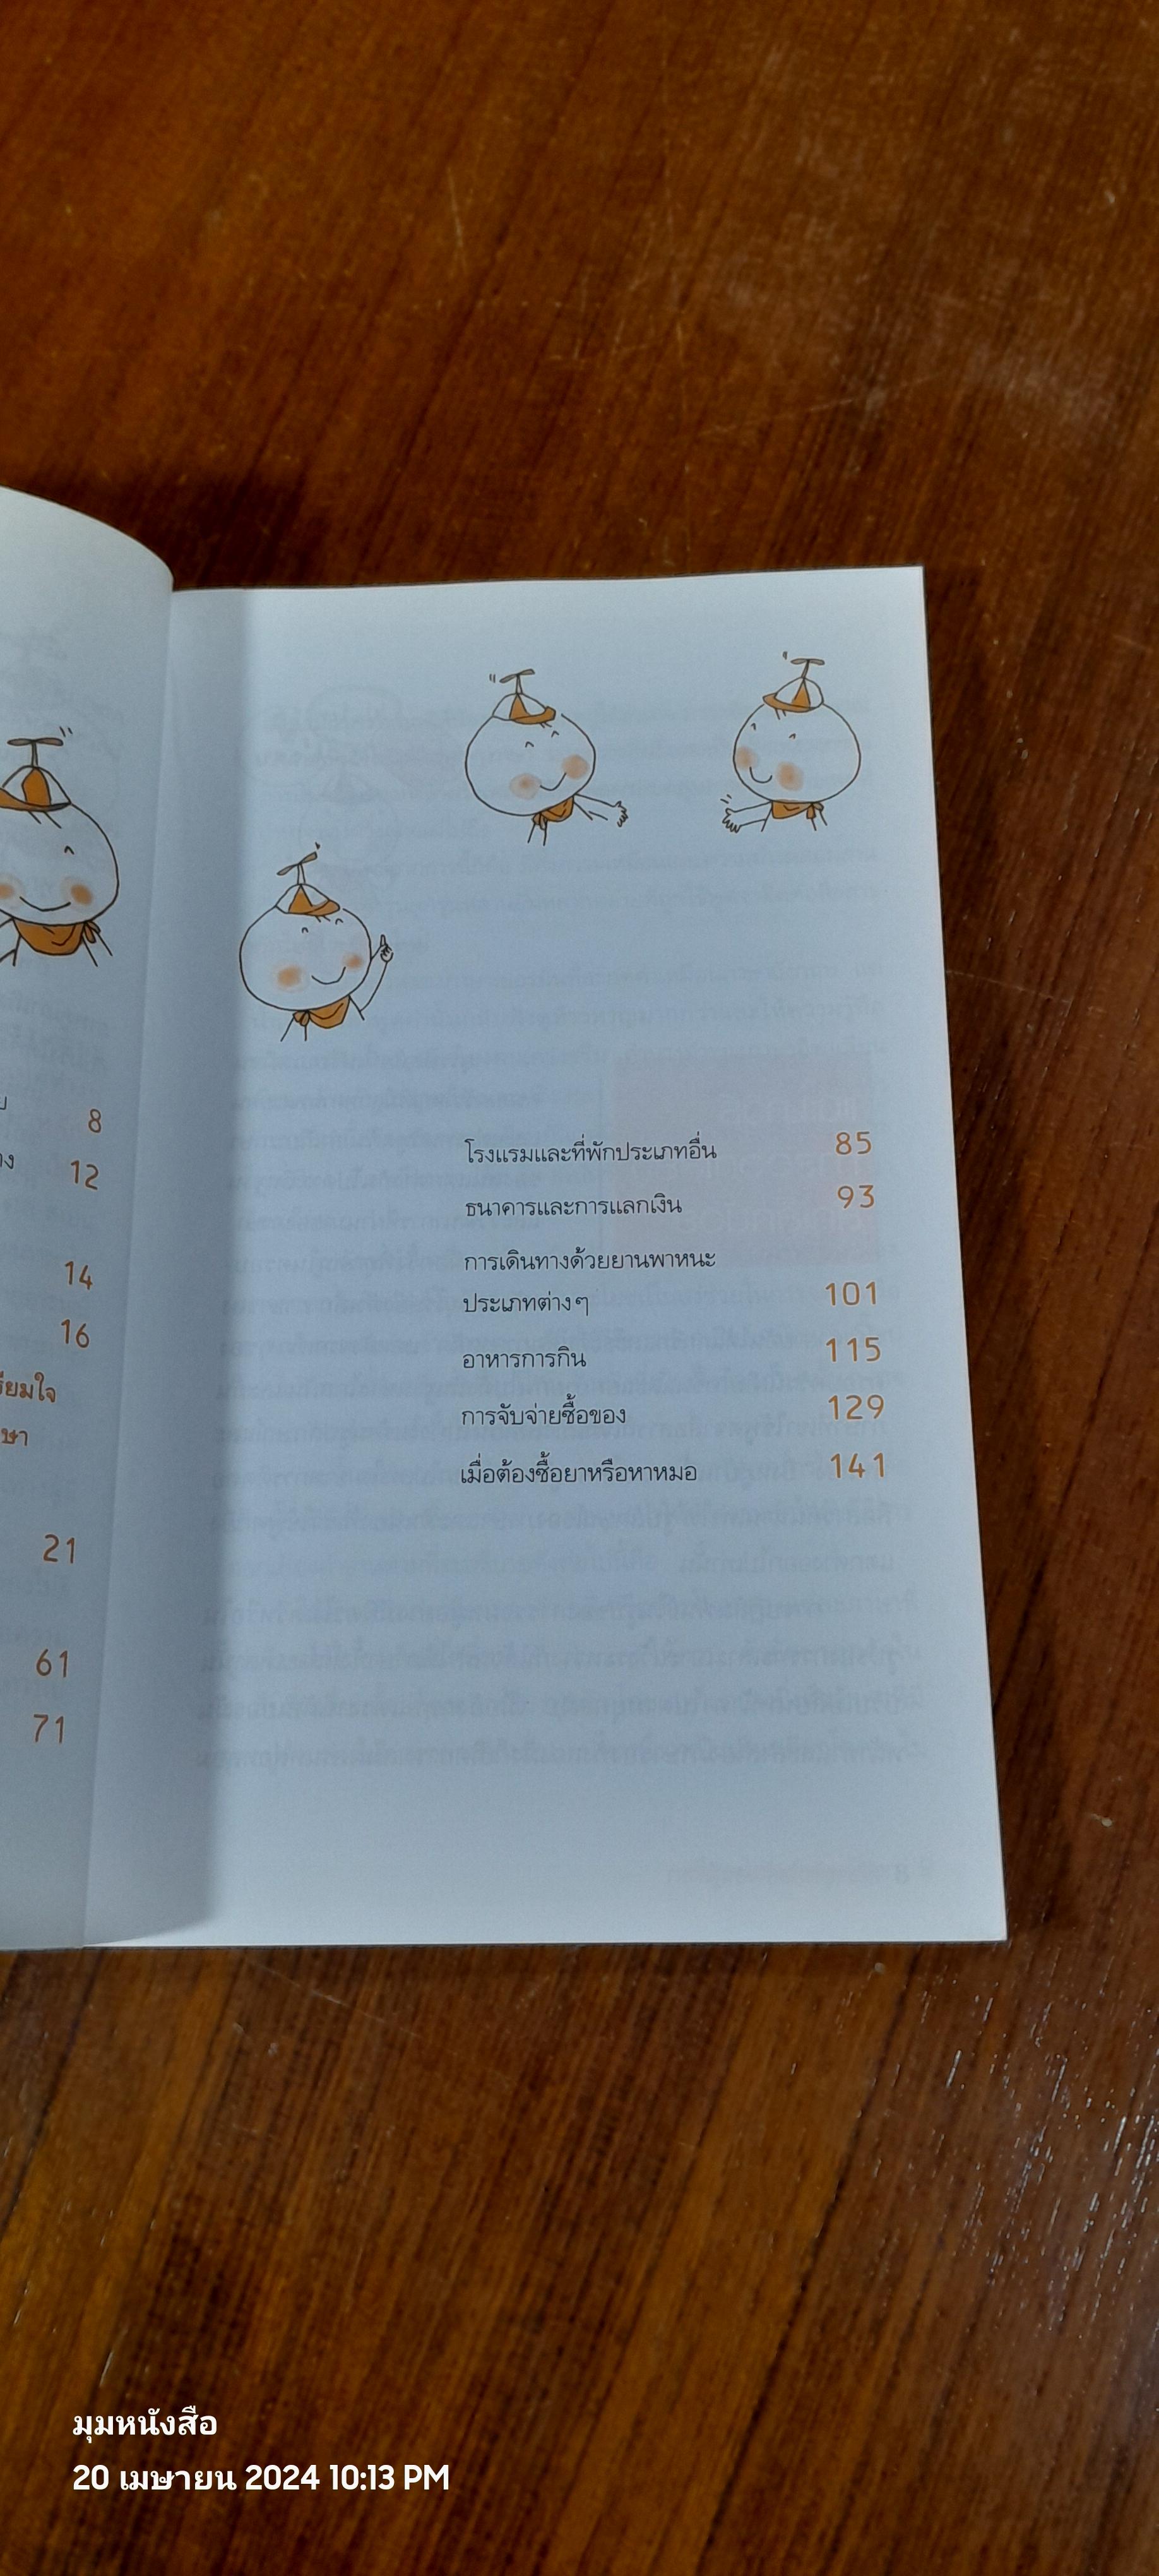 8
12
14
16
21
61
71
โรงแรมและที่พักประเภทอื่น 85
ธนาคารและการแลกเงิน 93
การเดินทางด้วยยานพาหนะ
ประเภทต่างๆ 101
อาหารการกิน 115
การจับจ่ายซื้อของ 129
เมื่อต้องซื้อยาหรือหาหมอ 141
มุมหนังสือ
20 เมษายน 2024 10:13 PM